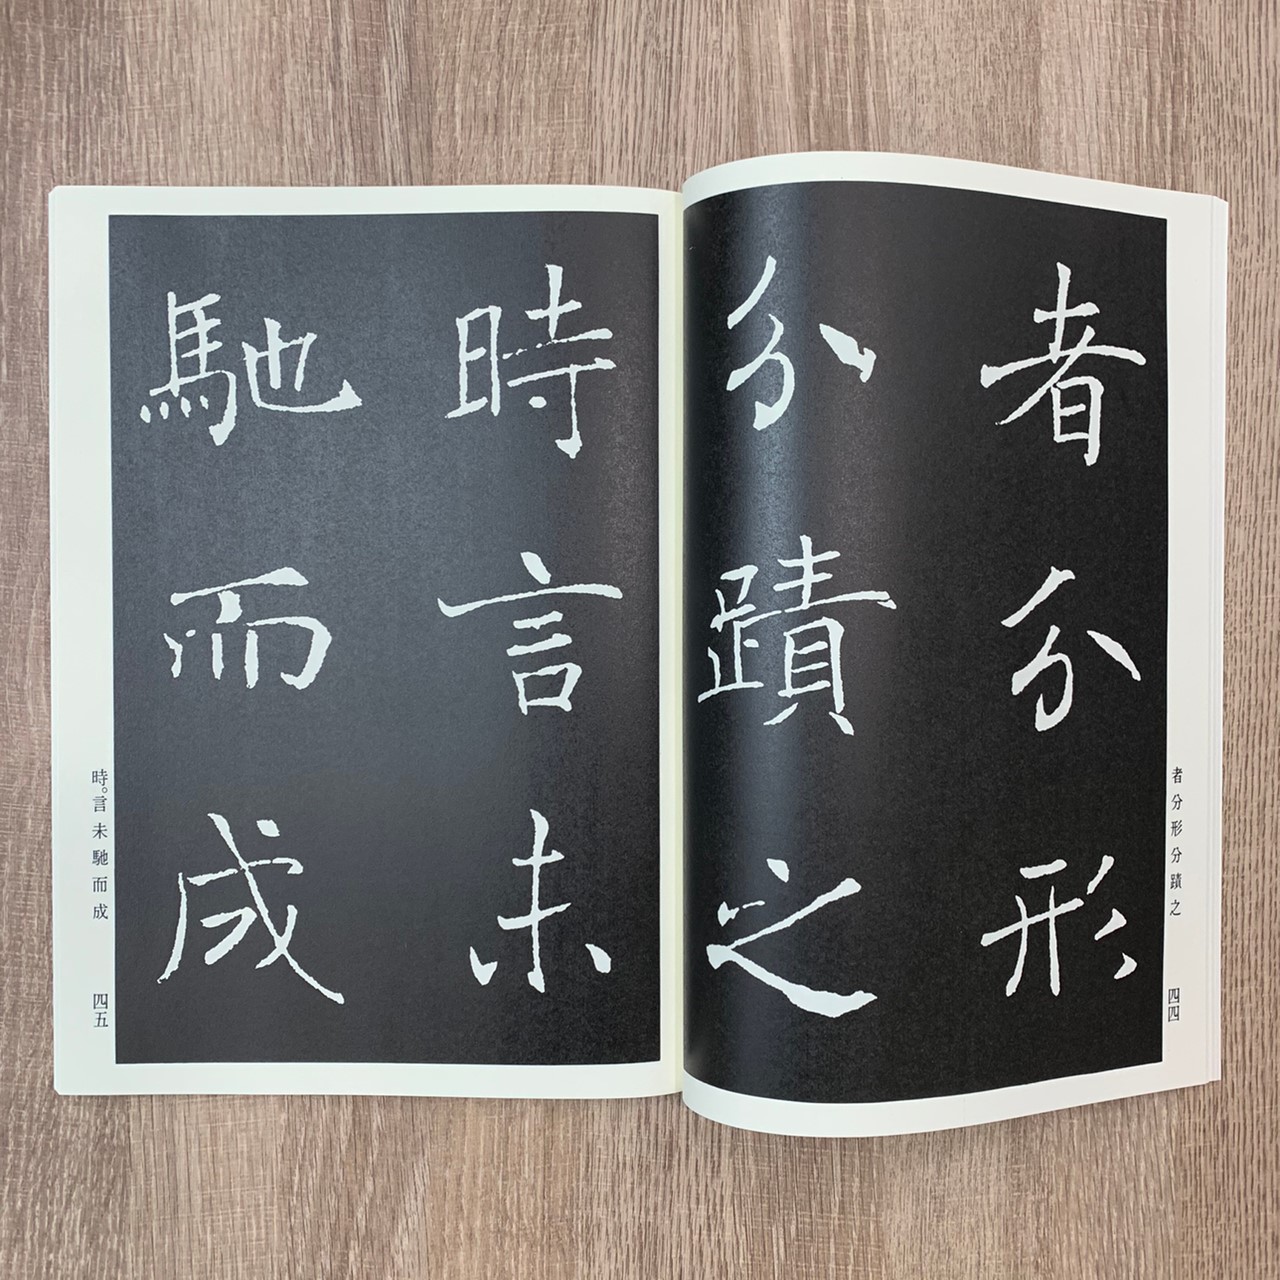 者分形
分蹟之
者分形分蹟之
四四
時言未
馳而成
時。言未馳而成
四五